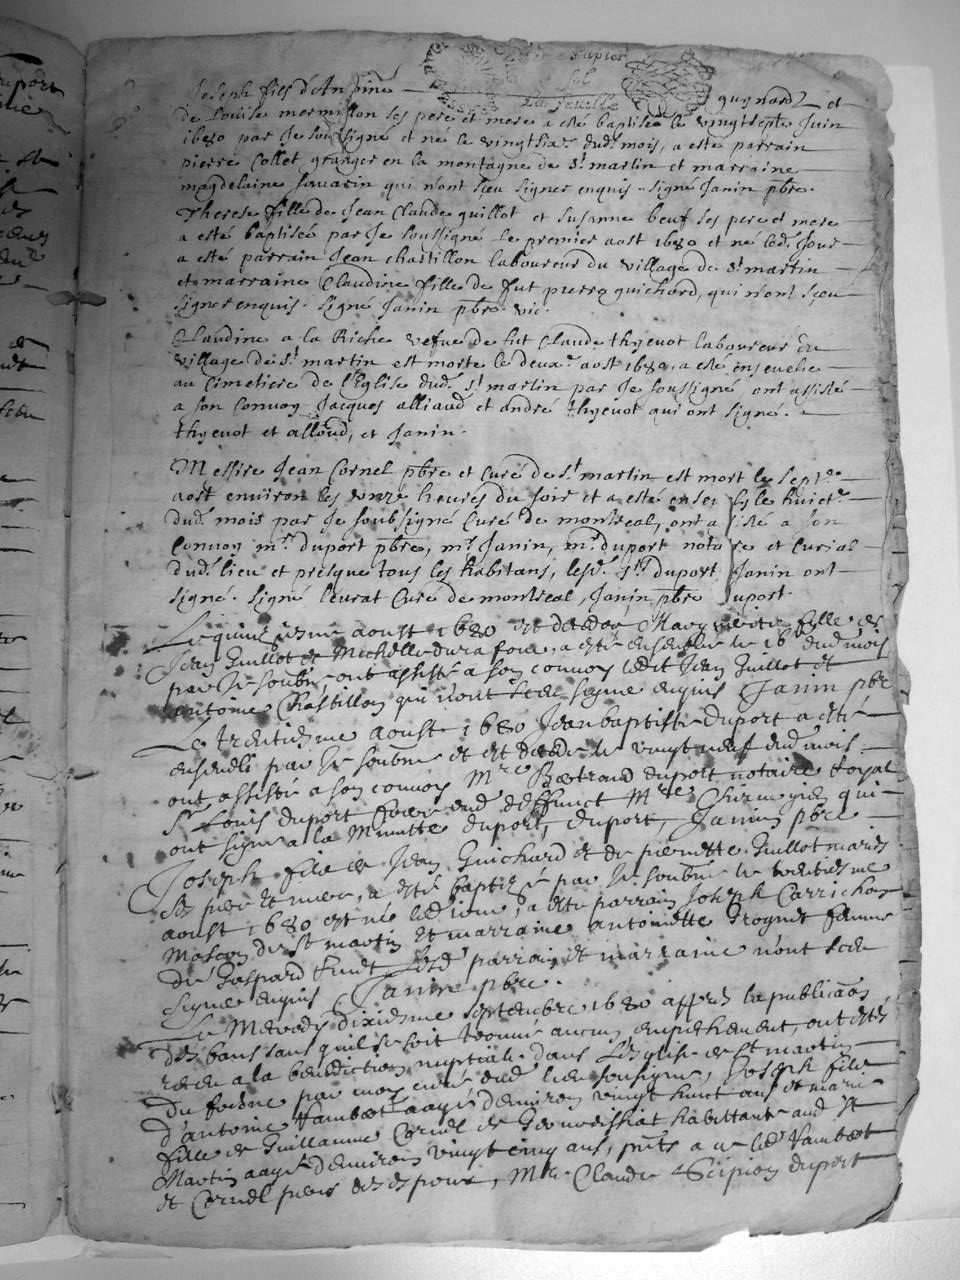 papier
sol
la feuille
Joseph fils d'Antoine guignard et
de Louise mermillon ses pere et mere a esté baptisé le vingtsepte Juin
1680 par Je soussigné et né le vingtsix.e dud. mois, a este parrain
pierre Collet granger en la montagne de s.t martin et marraine
magdelaine sauarin qui n'ont sceu signer enquis. signé Janin pbre.
Therese fille de Jean Claude quillot et susanne beuf ses pere et mere
a esté baptisée par Je soussigné le premier aost 1680 et né led. Jour
a esté parrain Jean chastillon laboureur du village de s.t martin
et marraine Claudine fille de fut pierre guichard, qui n'ont sceu
signer enquis. signé Janin pbre. vic.
Claudine a la Riche vefue de fut Claude thyeuot laboureur du
village de s.t martin est morte le deux.e aost 1680, a esté enseuelie
au Cimetiere de l'Eglise dud. s.t martin par Je soussigné, ont assisté
a son Conuoy Jacques alliaud et andré thyeuot qui ont signé.
thyeuot et alloud, et Janin.
Messire Jean Cornel pbre et Curé de s.t martin est mort le sept.e
aost enuiron les unze heures du soir et a esté enseuely le huict.e
dud. mois par Je soubsigné Curé de montreal, ont assisté a son
Conuoy m.r duport pbre, m.r Janin, m.r duport notaire et Curial
dud. lieu et presque tous les habitans, lesd. s.rs duport Janin ont
signé. signé leurat Curé de montreal, Janin pbre duport.
Le quinziesme aoust 1680 est decedee Marguerite fille de
Jean Guillot et Michelle durafour, a esté enseuelie le 16 dud mois
par Je soubne ont assisté a son conuoy ledit Jean Guillot et
antoine Chastillon qui n'ont sceu signe enquis Janin pbre
Le trentiesme aoust 1680 Jean baptiste duport a esté
enseueli par Je soubne et est decede le vingt neuf dud mois
ont assisté a son conuoy M.re Bertrand duport notaire Royal
S.r Louis duport frere dud deffunct M.re Chirurgien qui
ont signe a la Minutte duport, duport, Janin pbre
Joseph fils de Jean Guichard et de pierrette Guillot mariés
ses pere et mere, a esté baptizé par Je soubne le trentiesme
aoust 1680 est né led jour, a este parrain Joseph Carrichon
Masson de St martin et marraine antoinette Trognet femme
de Gaspard lesd parrain et marraine n'ont sceu
signe enquis Janin pbre.
Le Mercredy dixiesme septembre 1680 appres la publicaon
des bans sans quil se soit trouué aucun empeschement, ont estés
receu a la benediction nuptiale dans L'Eglise de St martin
du fresne par moy curé dud lieu soussigne, Joseph fils
d'antoine Vambert aagé denuiron vingt huict ans et marie
fille de Guillaume Cornel de Geouoissiat habittante aud St
Martin aagee denuiron vingt cinq ans, pnts a ce led Vambert
et Cornel peres desd espoux, M.re Claude Scipion duport